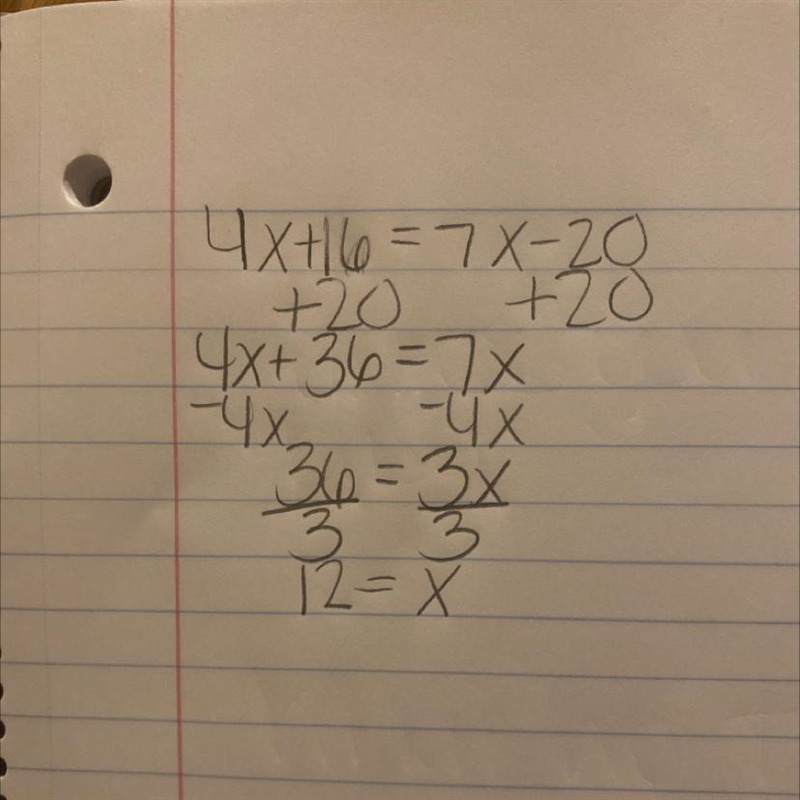 4x+16=7x-20
+20 +20
4x+36=7x
-4x -4x
36=3x
3 3
12=x